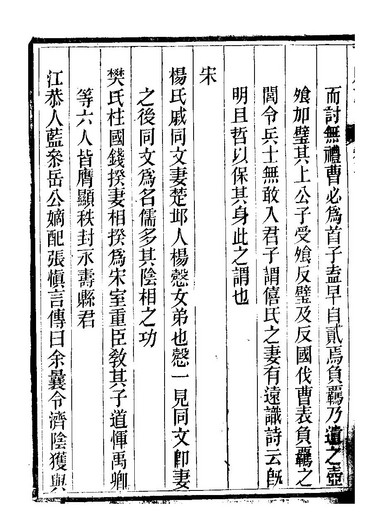 而討無禮曹必為首子盍早自貳焉負羈乃遺之壺
飱加璧其上公子受飱反璧及反國伐曹表負羈之
閭令兵士無敢入君子謂僖氏之妻有遠識詩云旣
明且哲以保其身此之謂也
宋
楊氏戚同文妻楚邱人楊慤女弟也慤一見同文卽妻
之後同文為名儒多其陰相之功
樊氏柱國錢揆妻相揆為宋室重臣敎其子道惲禹卿
等六人皆膺顯秩封永壽縣君
江恭人藍叅岳公嫡配張愼言傳曰余曩令濟陰獲與